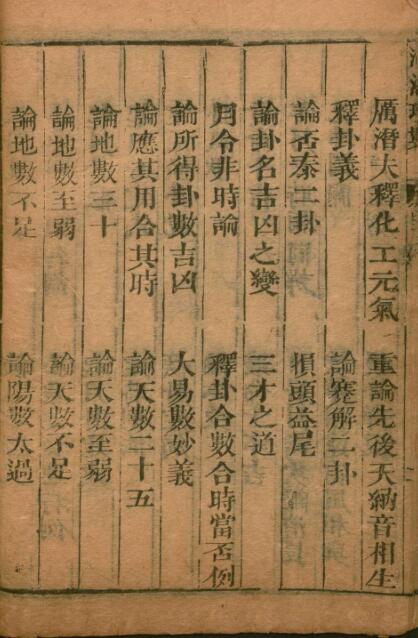 厲潛夫釋化工元氣
重論先後天納音相生
釋卦義
論蹇解二卦
論否泰二卦
損頭益尾
論卦名吉凶之變
三才之道
月令非時論
釋卦合數合時當否例
論所得卦數吉凶
大易數妙義
論應其用合其時
論天數二十五
論地數三十
論天數至弱
論地數至弱
論天數不足
論地數不足
論陽數太過